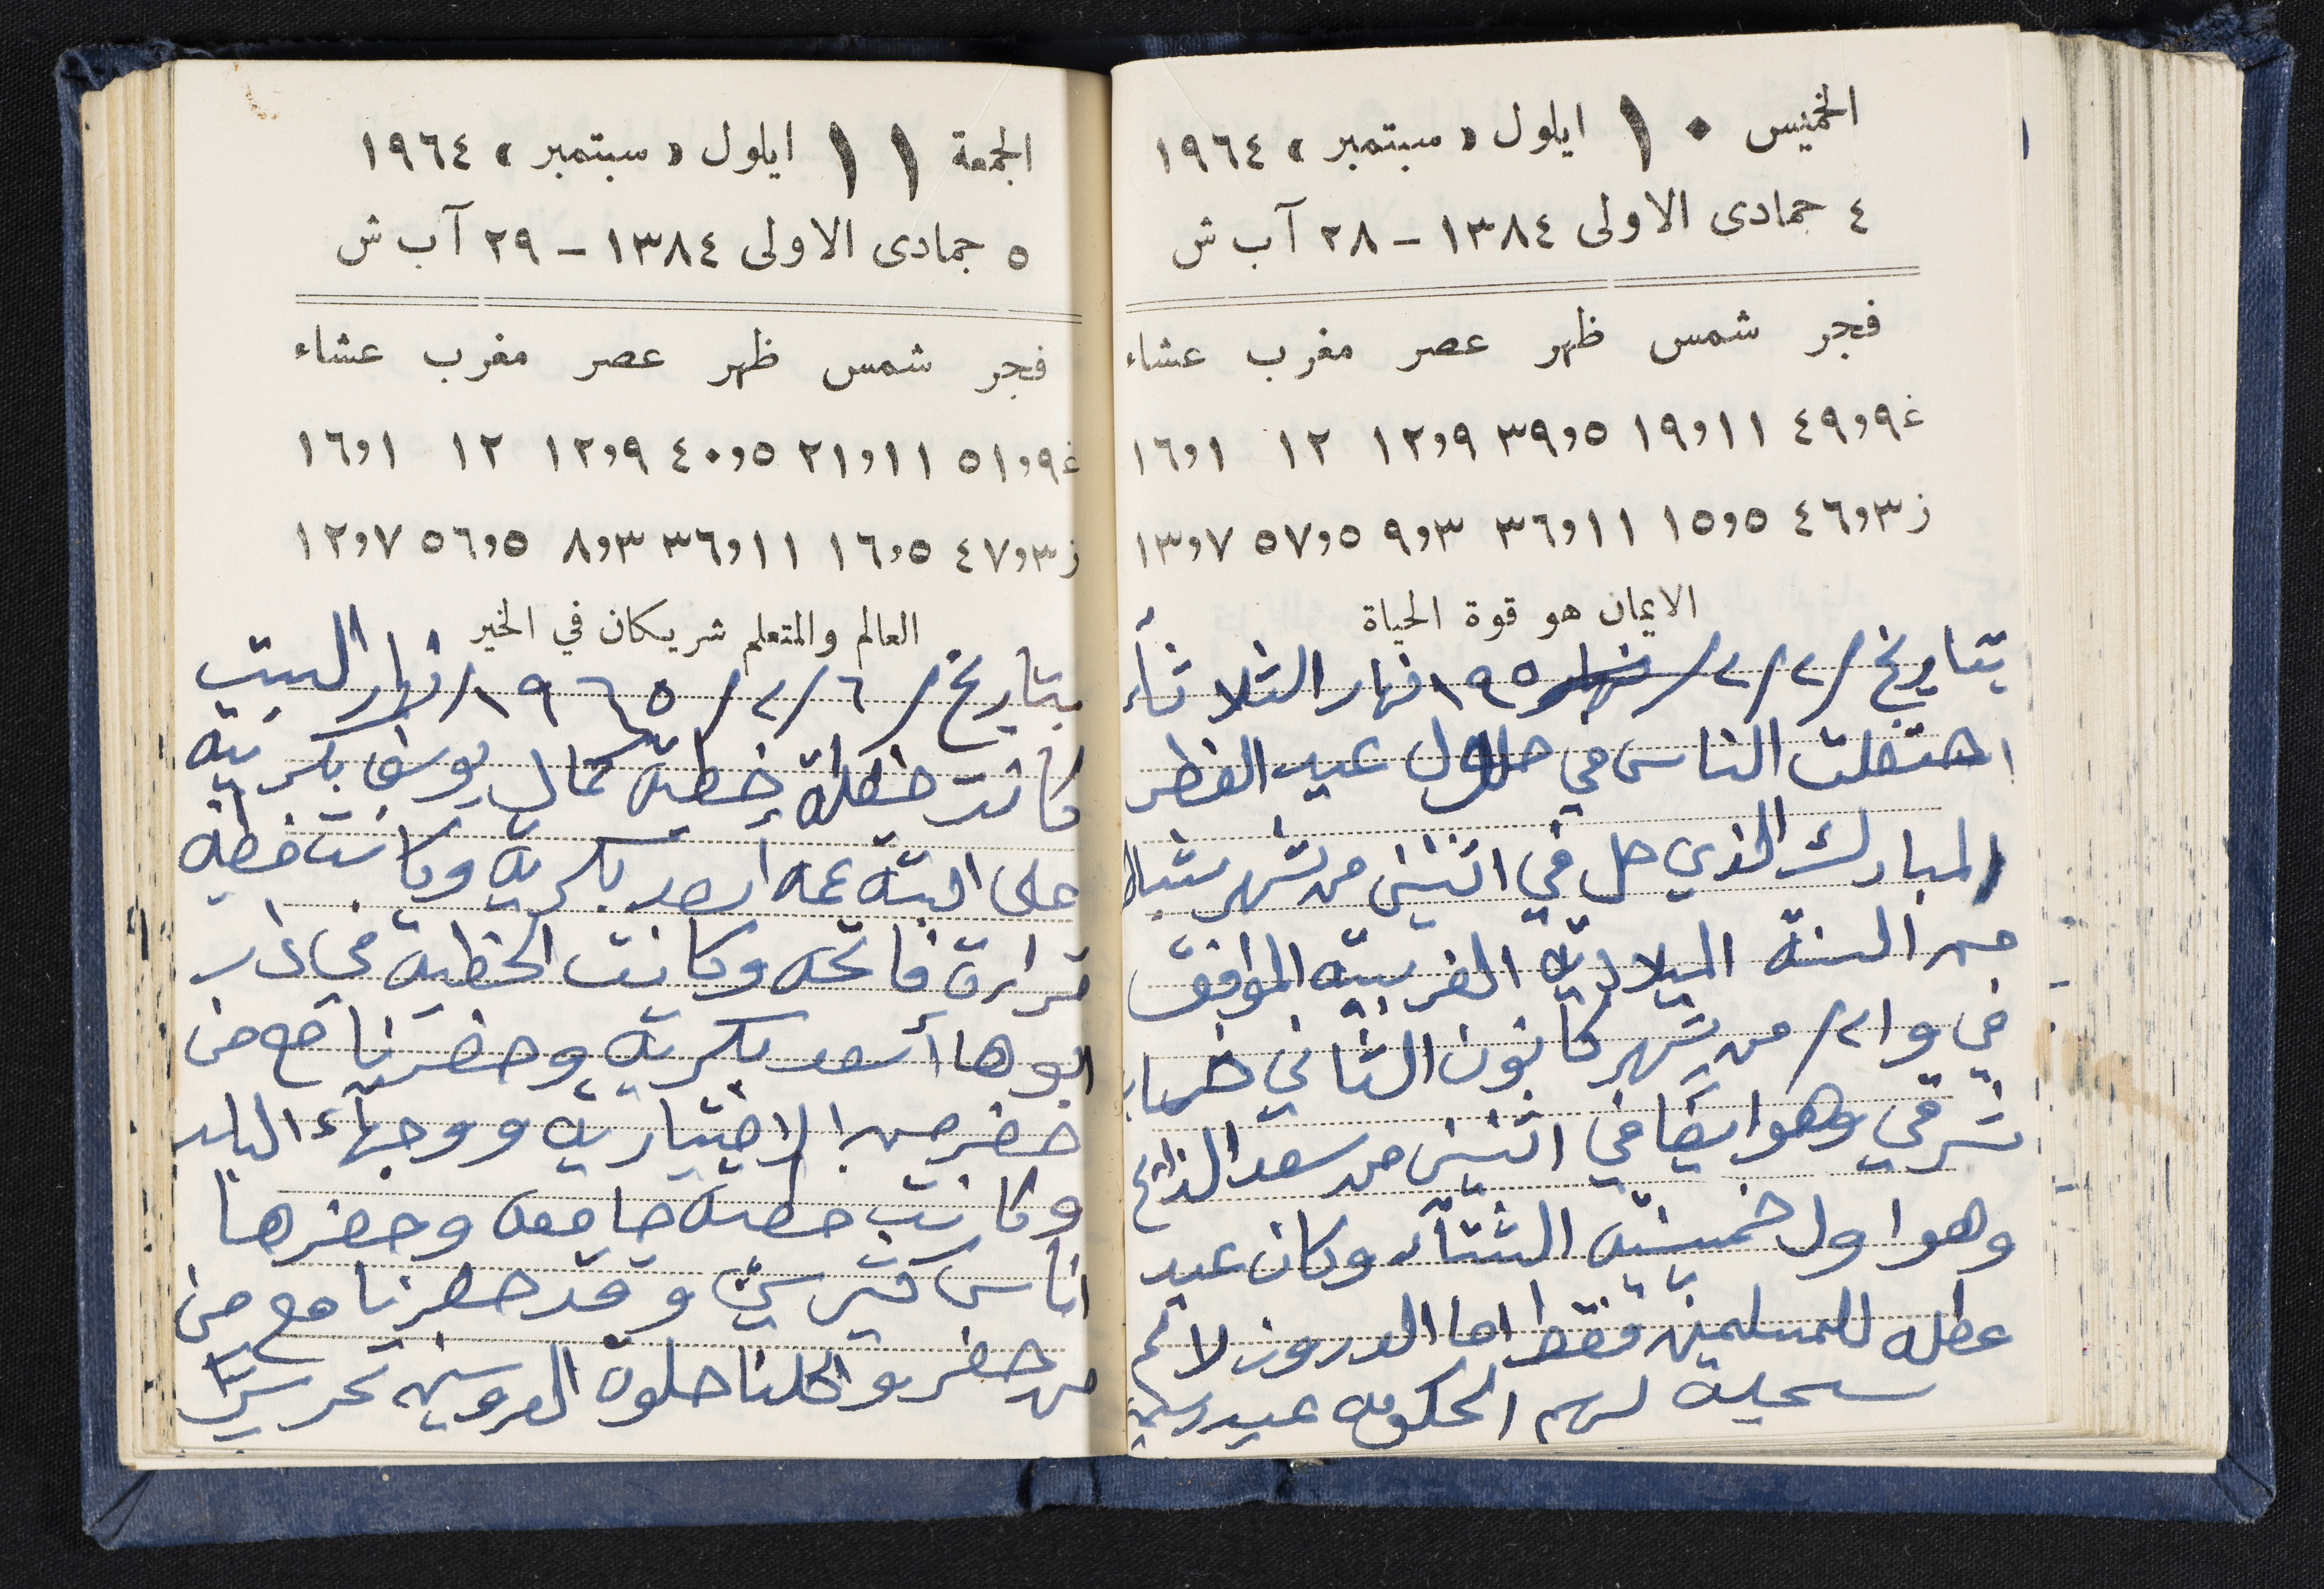 الخميس ١٠ ايلول « سبتمبر » ١٩٦٤
٤ جمادى الاولى ١٣٨٤ - ٢٨ آب ش
فجر شمس ظهر عصر مغرب عشاء
غ ٤٩,٩ ١٩,١١ ٣٩,٥ ١٢,٩ ١٢ ١٦,١
ز ٤٦,٣ ١٥,٥ ٣٦,١١ ٩,٣ ٥٧,٥ ١٣,٧
الايمان هو قوة الحياة
بتاريخ /٢/٢/ ١٩٥ نهار الثلاثاء
احتفلت الناس في حلول عيد الفطر
المبارك الذي حل في اثنين من شهر شباط
من السنة الميلادية الغربيه الموافق
في و٢١/ من شهر كانون الثاني حساب
شرقي وهو ايضًا في اثنين من سعد الذابح
وهو اول خمسينية الشتآء وكان عيد
عطله للمسلمين فقط اما الدروز لا لم
سجلة لهم الحكومه عيد رسمي
الجمعة ١١ ايلول « سبتمبر » ١٩٦٤
٥ جمادى الاولى ١٣٨٤ - ٢٩ آب ش
فجر شمس ظهر عصر مغرب عشاء
غ ٥١,٩ ٢١,١١ ٤٠,٥ ١٢,٩ ١٢ ١٦,١
ز ٤٧,٣ ١٦,٥ ٣٦,١١ ٨,٣ ٥٦,٥ ١٢,٧
العالم والمتعلم شريكان في الخير
بتاريخ /٦/٢/ ١٩٦٥/ نهار السبت
كانت حفلة خطبة كمال يوسف بكريه
على ابنة عمه أسعد بكرية وكانت خطبه
قرارة فاتحه وكانت الخطبة في دار
ابوها أسعد بكرية وحضرنا مع من
حضر من الاختيارية ووجهآء البلد
وكانت حطه جامعه وحضرها
اناس كثير وقد حضرنا مع من
من حضر واكلنا حلوة العروسين